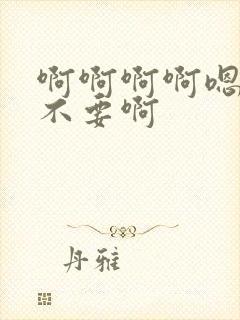 啊啊啊啊嗯
不要啊
丹雅